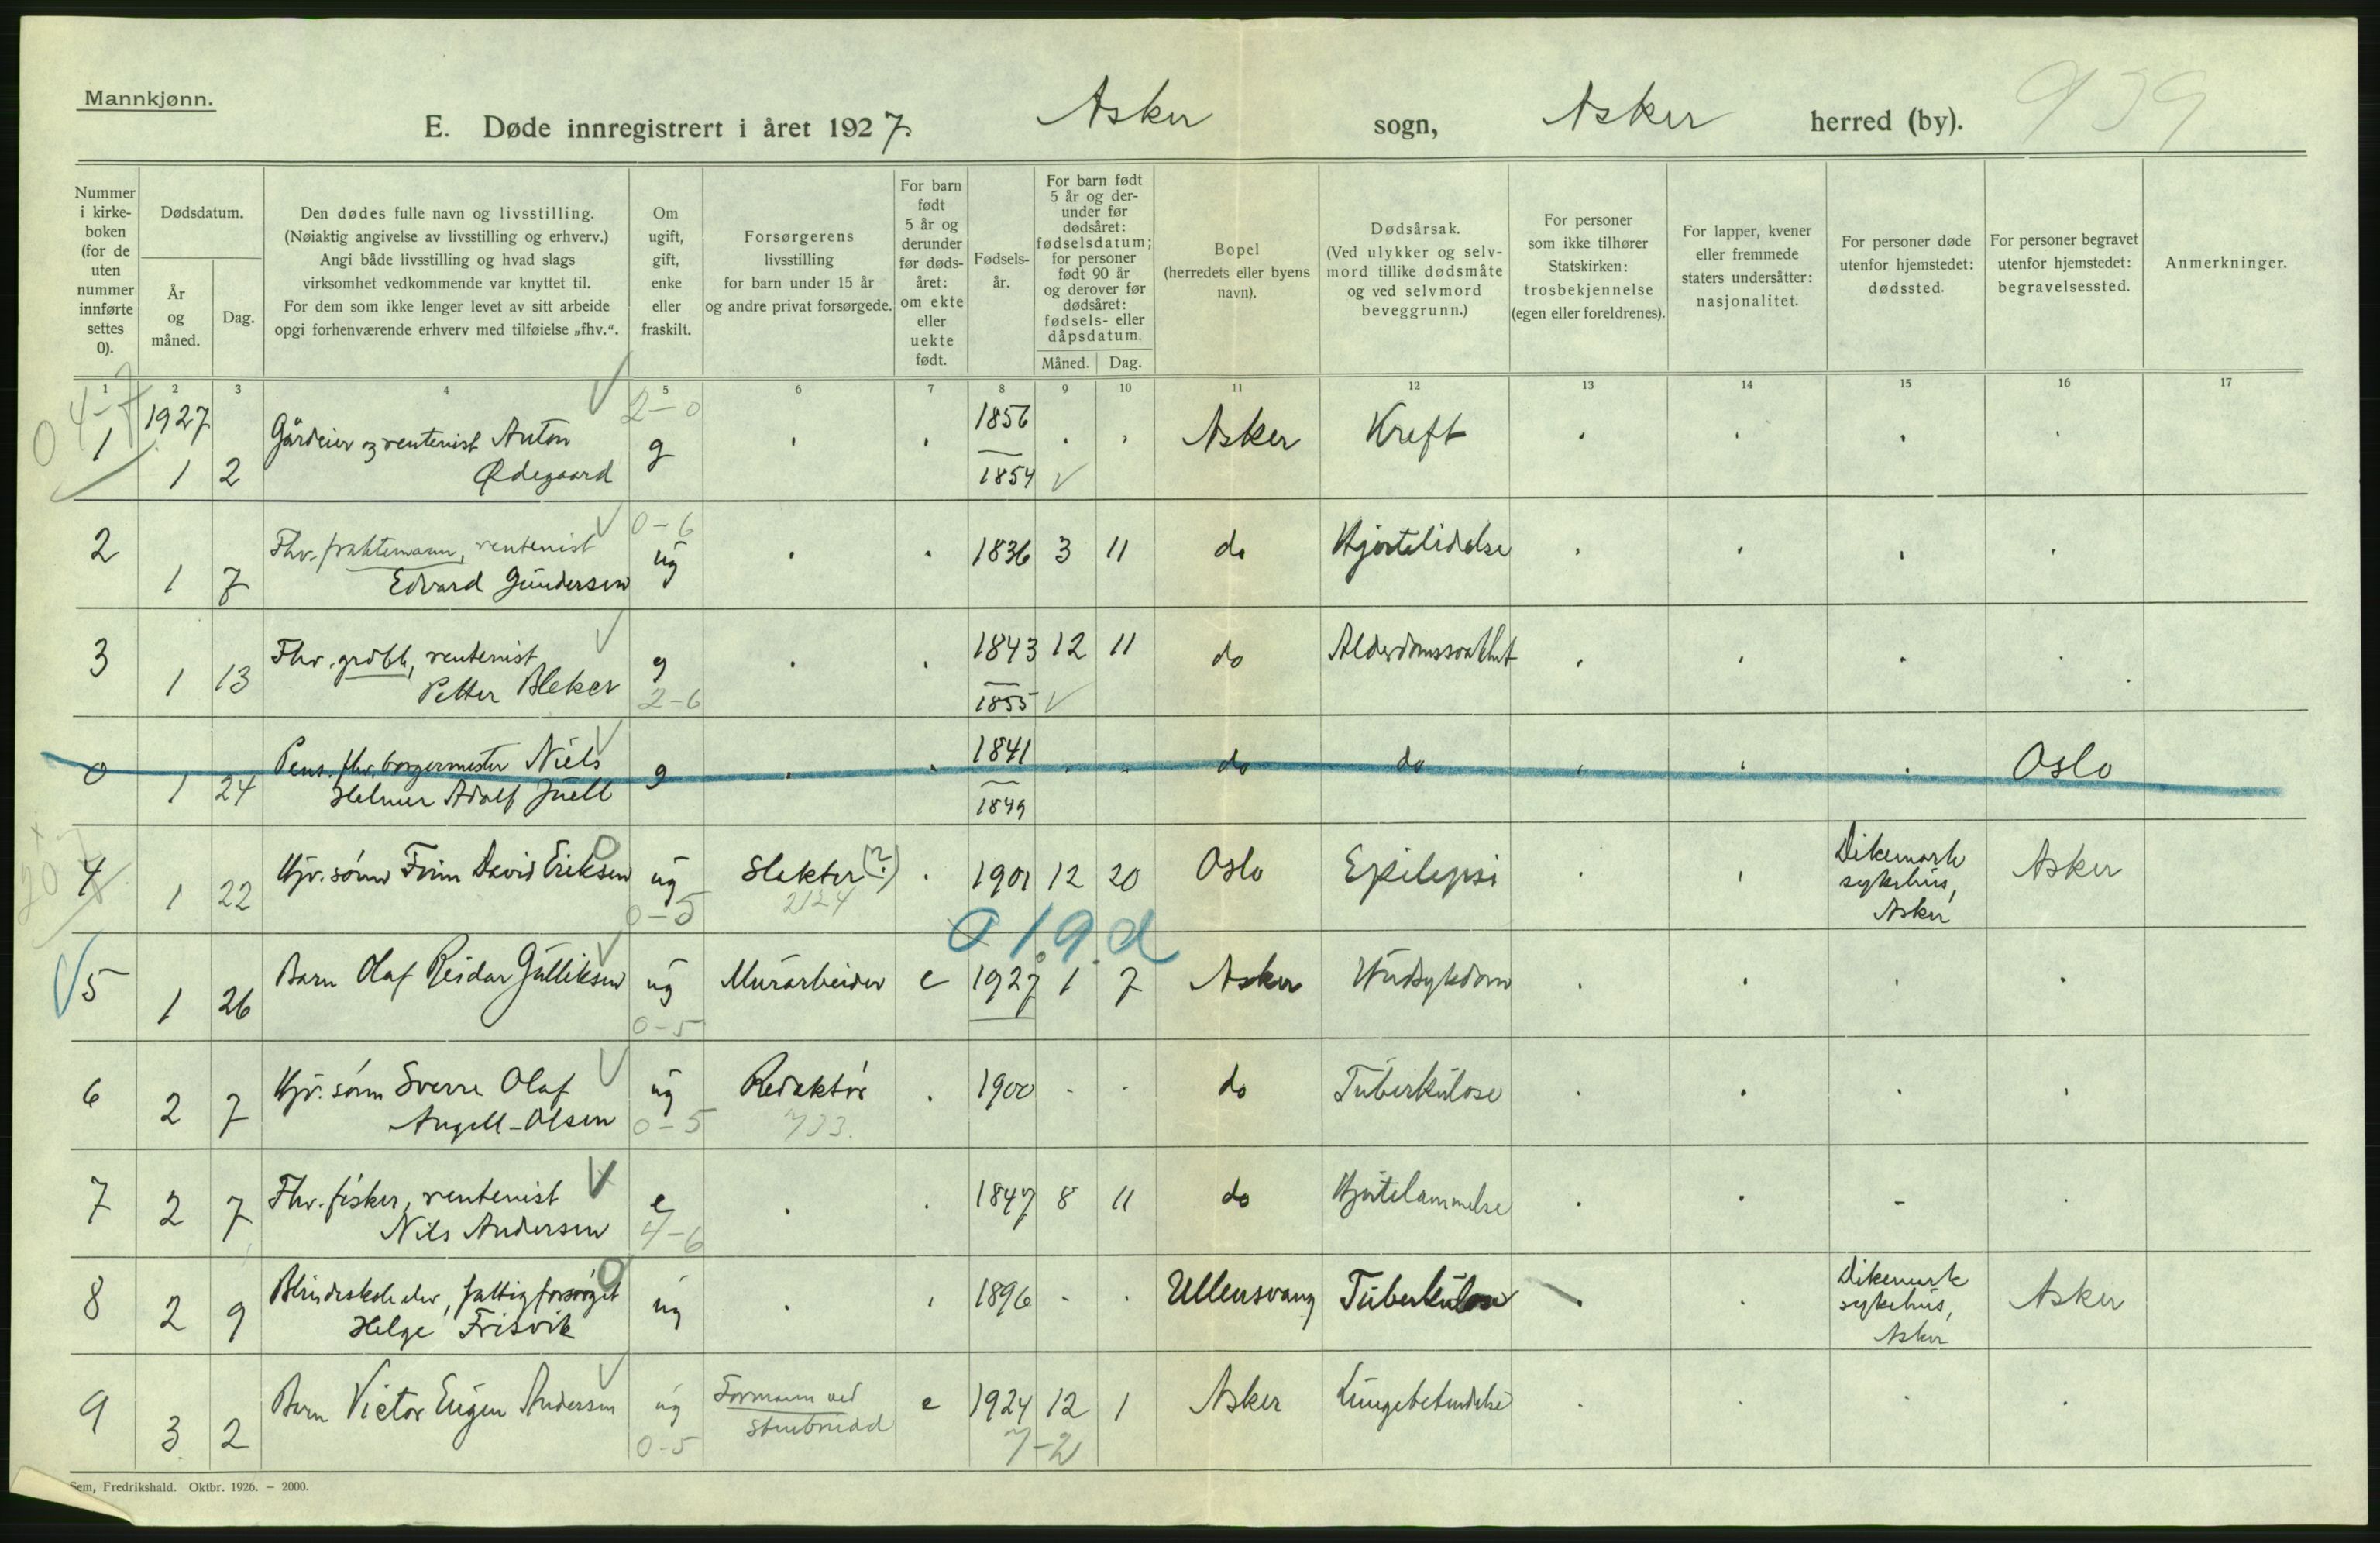 Mannkjønn.
E. Døde innregistrert i året 1927. Asker sogn, Asker herred (by). 939
Nummer i kirke-boken (for de uten nummer innførte settes 0).
Dødsdatum.
År og måned.
Dag.
Den dødes fulle navn og livsstilling.
(Nøiaktig angivelse av livsstilling og erhverv.)
Angi både livsstilling og hvad slags
virksomhet vedkommende var knyttet til.
For dem som ikke lenger levet av sitt arbeide
opgi forhenværende erhverv med tilføielse „fhv.“.
Om ugift, gift, enke eller fraskilt.
Forsørgerens
livsstilling
for barn under 15 år
og andre privat forsørgede.
For barn født 5 år og derunder før døds-året: om ekte eller uekte født.
Fødsels-år.
For barn født 5 år og der-under før dødsåret: fødselsdatum; for personer født 90 år og derover før dødsåret: fødsels- eller dåpsdatum.
Måned. Dag.
Bopel
(herredets eller byens
navn).
Dødsårsak.
(Ved ulykker og selv-
mord tillike dødsmåte
og ved selvmord
beveggrunn.)
For personer
som ikke tilhører
Statskirken:
trosbekjennelse
(egen eller foreldrenes).
For lapper, kvener
eller fremmede
staters undersåtter:
nasjonalitet.
For personer døde
utenfor hjemstedet:
dødssted.
For personer begravet
utenfor hjemstedet:
begravelsessted.
Anmerkninger.
1 2 3 4 5 6 7 8 9 10 11 12 13 14 15 16 17
0 4-7 1927 2-0 1856
1 Gårdeier og rentenist Anton g Asker Kreft
1 2 Ødegaard 1854
2 Fhv. fraktemann, rentenist 0-6 ug 1836 3 11 do Hjertelidelse
1 7 Edvard Gundersen
3 Fhv. grdbh, rentenist g 1843 12 11 do Alderdomssvakhet
1 13 Petter Bleker 2-6 1855
0 Pens. fhv. borgermester Niels g 1841 do do Oslo
1 24 Helmer Adolf Juell 1849
4 1 22 Hjv. sønn Finn David Eriksen ug Slakter (?) 1901 12 20 Oslo Epilepsi Dikemark sykehus, Asker Asker
0-5 2124
0 19 d
5 1 26 Barn Olaf Reidar Gulliksen ug Murarbeider e 1927 1 7 Asker Hudsykdom
0-5
6 2 7 Hjv. sønn Sverre Olaf ug Redaktør 1900 do Tuberkulose
Angell-Olsen 0-5 723.
7 2 7 Fhv. fisker, rentenist e 1847 8 11 do Hjertelammelse
Nils Andersen 4-6
8 2 9 Blindeskoleelev, fattigforsørget ug 1896 Ullensvang Tuberkulose Dikemark sykehus, Asker Asker
Helge Frisvik
9 3 2 Barn Victor Eugen Andersen ug Formann ved e 1924 12 1 Asker Lungebetendelse
0-5 stenbrudd 7-2
Sem, Fredrikshald. Oktbr. 1926. – 2000.